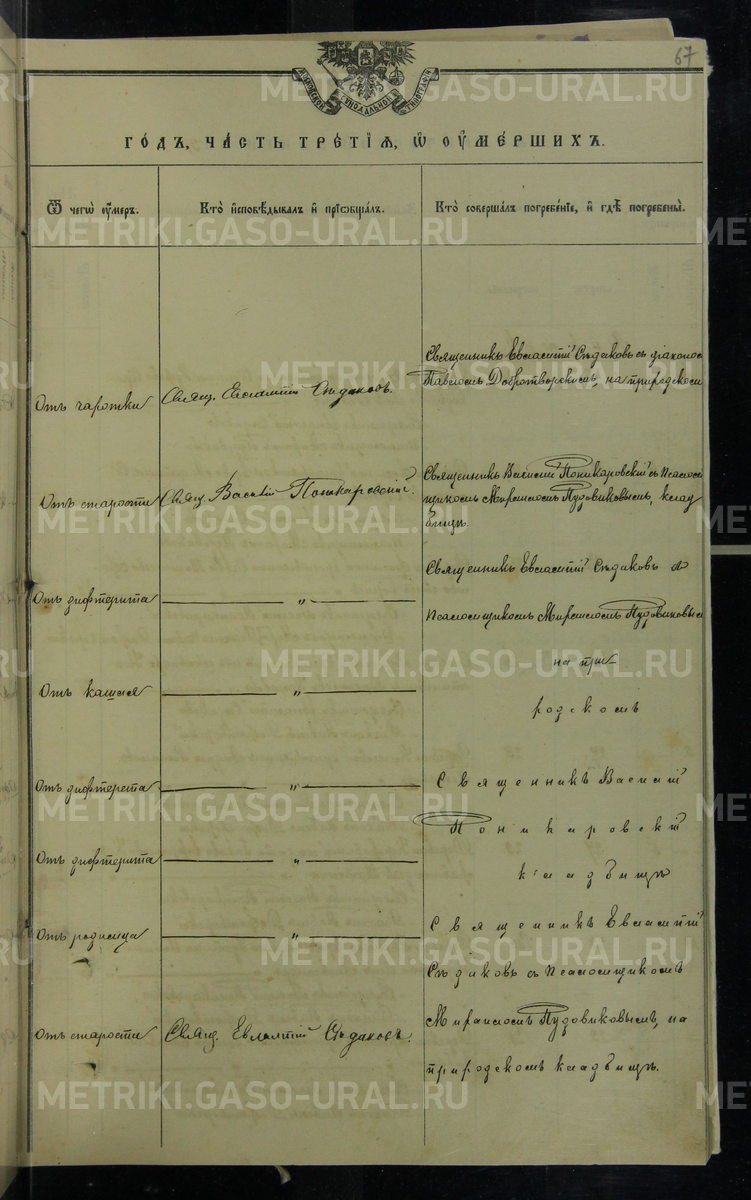 67
МОСКОВСКОЙ СѴНОДАЛЬНОЙ ТИПОГРАФІИ
ГО́ДЪ, ЧА́СТЬ ТРЕ́ТІѦ, Ѡ҆ ОУ҆МЕ́РШИХЪ.
Ѿ чегѡ̀ оу҆́меръ.
Кто̀ и҆сповѣ́дывалъ и҆ прїѡбща́лъ.
Кто̀ соверша́лъ погребе́нїе, и҆ гдѣ̀ погребены̀.
Отъ чахотки
Свящ. Евлампій Сѣдаковъ.
Священникъ Евлампій Сѣдаковъ съ діакономъ
Павломъ Добротворскимъ, на приходском
Отъ старости
Свящ. Василій Поникаровскій.
Священникъ Василій Поникаровскій съ Псалом
щикомъ Мираномъ Пудовиковымъ, клад
бищѣ.
Отъ дифтерита
— „ —
Священникъ Евлампій Сѣдаковъ съ
Псаломщикомъ Пудовиковым
Отъ кашля
— „ —
на при
ходскомъ
Отъ дифтерита
— „ —
Священникъ Василій
Поникаровскій
Отъ дифтерита
— „ —
кладбищѣ
Отъ родимца
— „ —
Священникъ Евлампій
Сѣдаковъ съ Псаломщикомъ
Отъ старости
Свящ. Евлампій Сѣдаковъ.
Пудовиковымъ, на
приходскомъ кладбищѣ.
METRIKI.GASO-URAL.RU